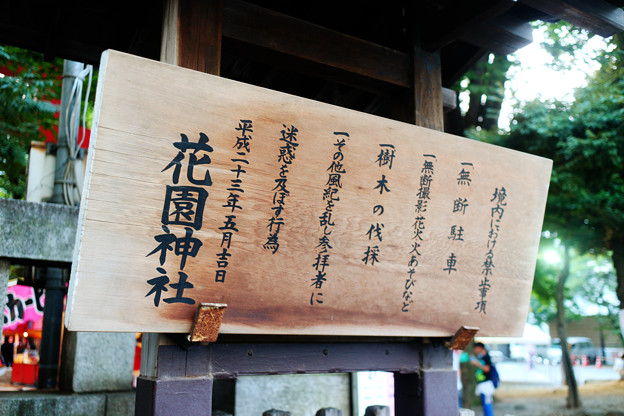 境内における禁止事項
一 無断駐車
一 無断撮影花火火あそびなど
一 樹木の伐採
一 その他風紀を乱し参拝者に
迷惑を及ぼす行為
平成二十三年五月吉日
花園神社